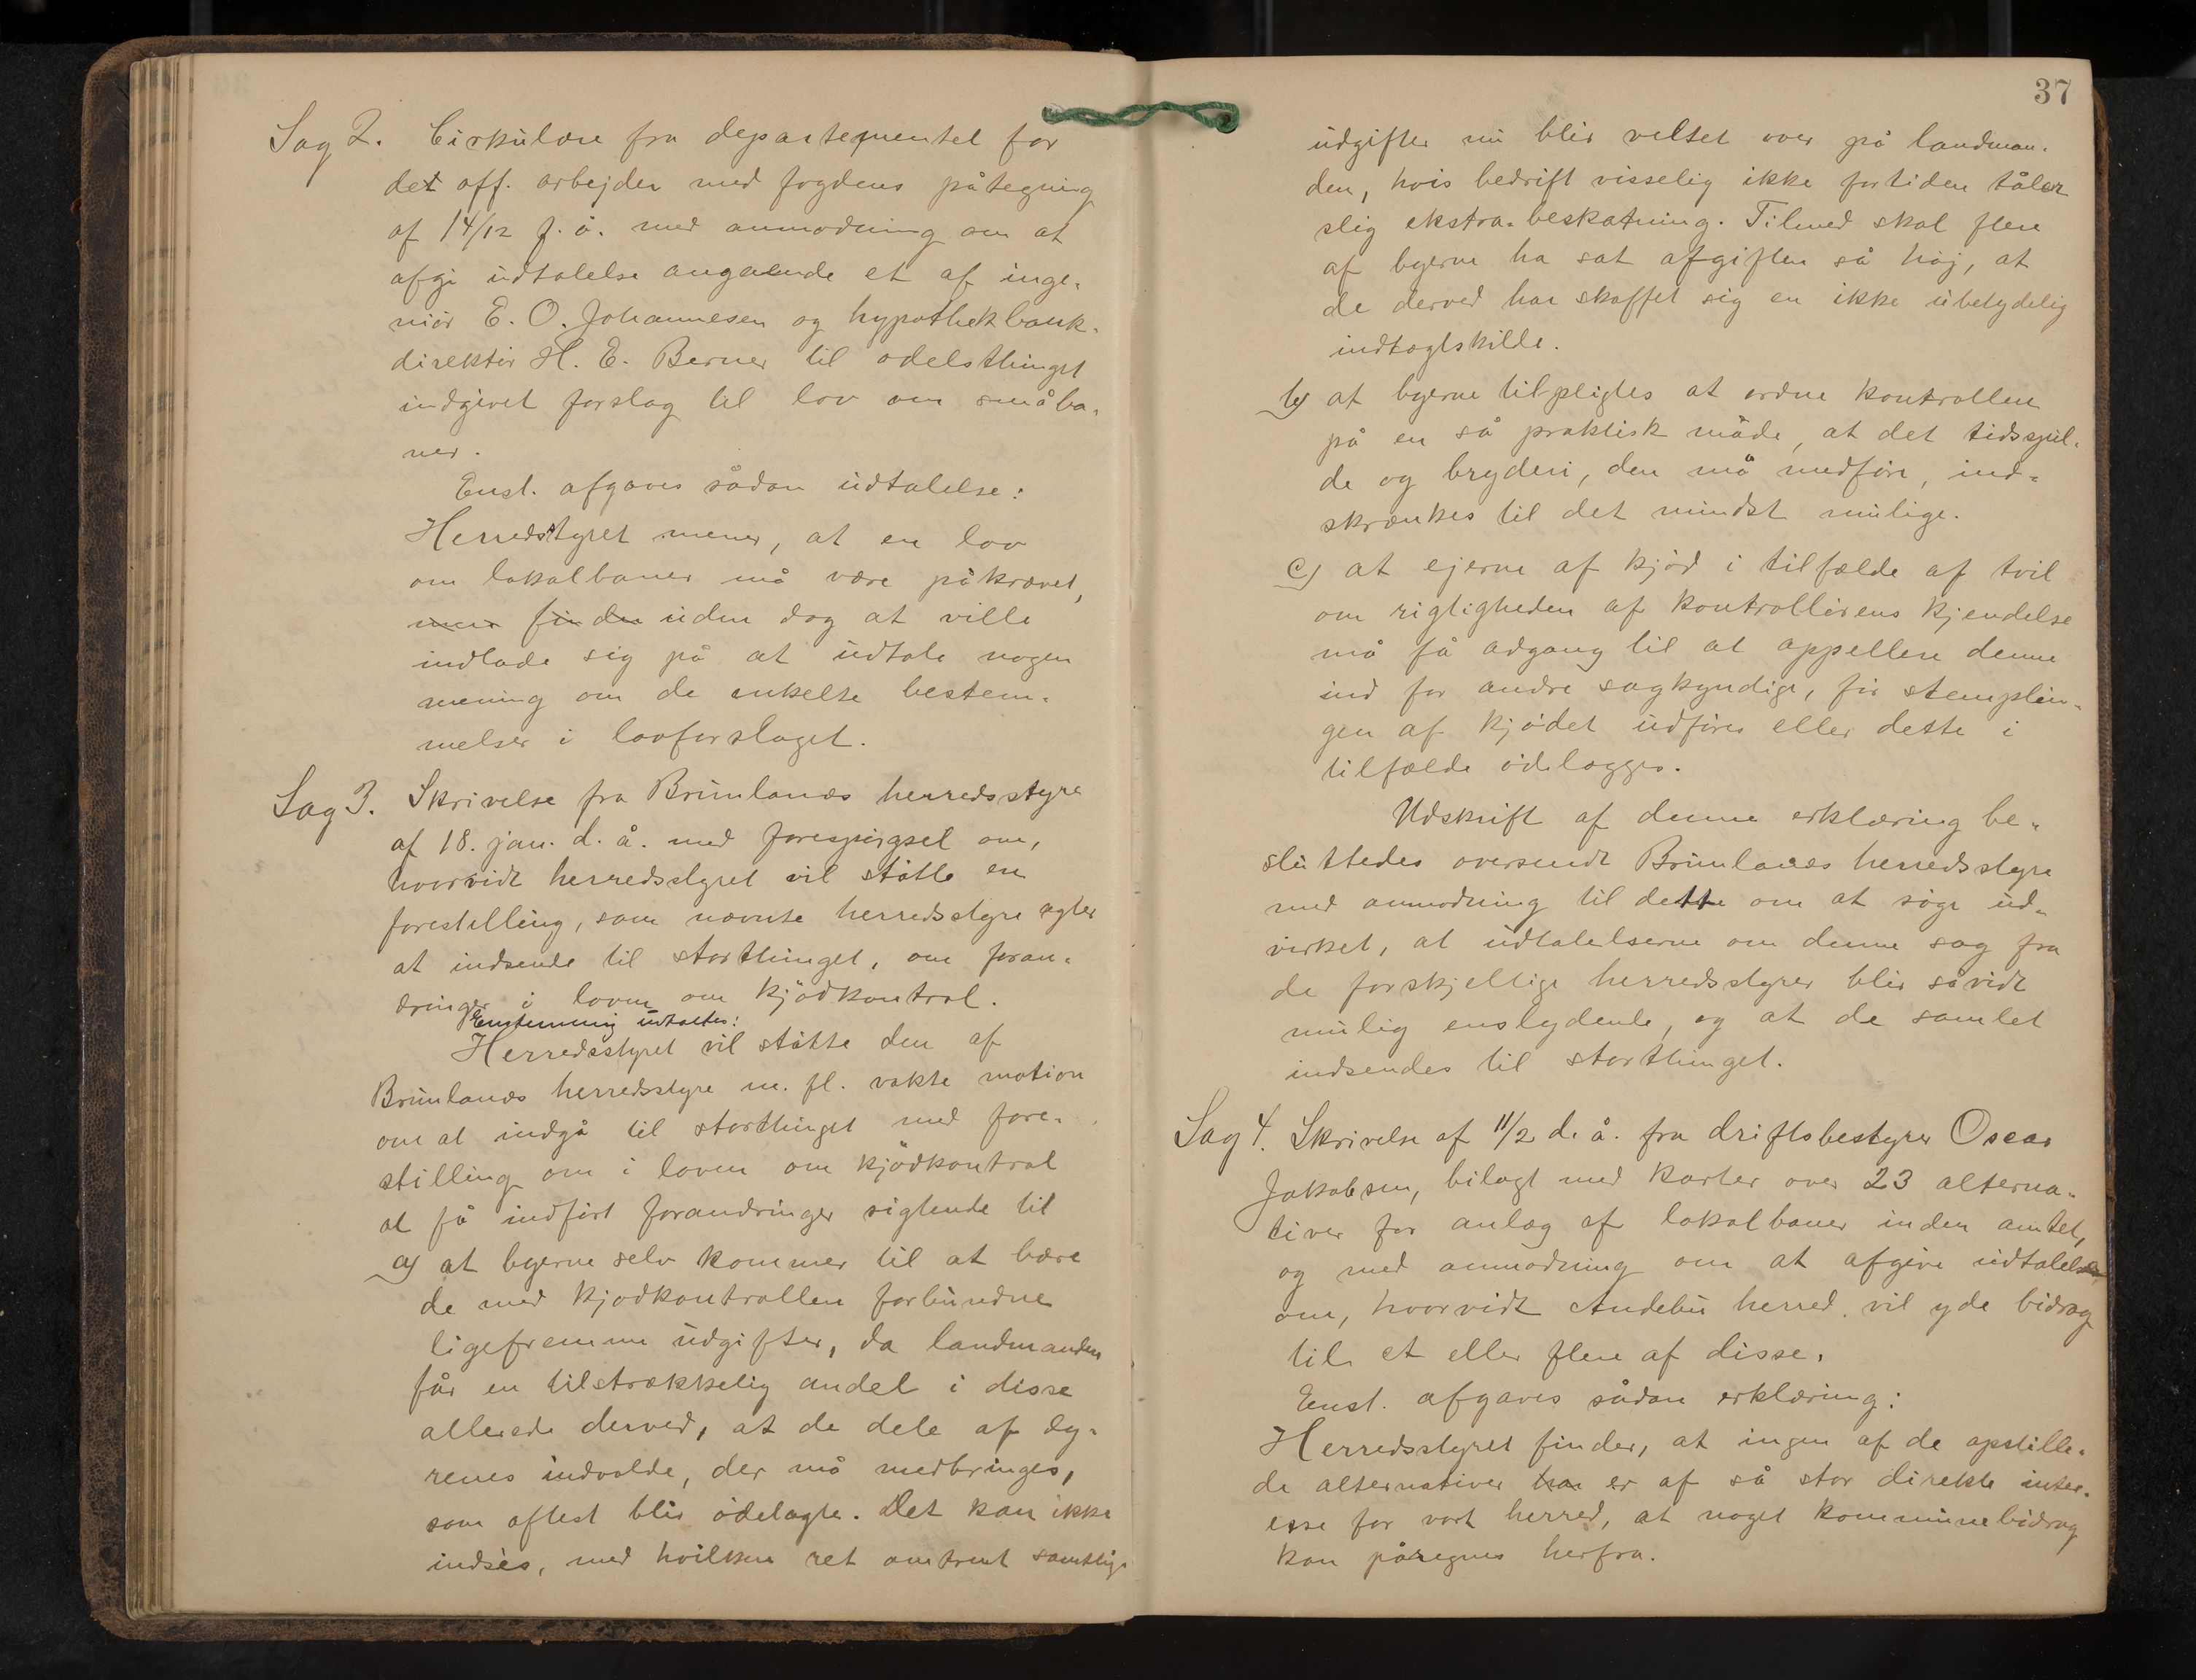 Sag 2. Cirkulære fra departementet for
det off. arbejder med fogdens påtegning
af 14/12 f. å. med anmodning om at
afgi udtalelse angaaende et af inge-
niør E. O. Johannesen og hypothekbank-
direktør H. E. Berner til odelsthinget
indgivet forslag til lov om småba-
ner.
Enst. afgaves sådan udtalelse:
Herredsstyret mener, at en lov
om lokalbaner må være påkrævet,
men finder uden dog at ville
indlade sig på at udtale nogen
mening om de enkelte bestem-
melser i lovforslaget.
Sag 3. Skrivelse fra Brunlanæs herredsstyre
af 18. jan. d. å. med forespørgsel om,
hvorvidt herredsstyret vil støtte en
forestilling, som nævnte herredsstyre agter
at indsende til storthinget, om foran-
dringer i loven om kjødkontrol.
Enstemmig udtaltes:
Herredsstyret vil støtte den af
Brunlanæs herredsstyre m. fl. vakte motion
om at indgå til storthinget med fore-
stilling om i loven om kjødkontrol
at få indført forandringer sigtende til
a) at byerne selv kommer til at bære
de med kjødkontrollen forbundne
ligefremme udgifter, da landmanden
får en tilstrækkelig andel i disse
allerede derved, at de dele af dy-
renes indvolde, der må medbringes,
som oftest blir ødelagte. Det kan ikke
indsès, med hvilken ret omtrent samtlige
37
udgifter nu blir veltet over på landman-
den, hvis bedrift visselig ikke fortiden tåler
slig ekstra-beskatning. Tilmed skal flere
af byerne ha sat afgiften så høj, at
de derved har skaffet sig en ikke ubetydelig
indtægtskilde.
b) at byerne tilpligtes at ordne kontrollen
på en så praktisk måde, at det tidsspil-
de og bryderi, den må medføre, ind-
skrænkes til det mindst mulige.
c) at ejerne af kjød i tilfælde af tvil
om rigtigheden af kontrollørens kjendelse
må få adgang til at appellere denne
ind for andre sagkyndige, før stemplin-
gen af kjødet udføres eller dette i
tilfælde ødelægges.
Udskrift af denne erklæring be-
sluttedes oversendt Brunlanæs herredsstyre
med anmodning til dette om at søge ud-
virket, at udtalelserne om denne sag fra
de forskjellige herredsstyrer blir såvidt
mulig enslydende, og at de samlet
indsendes til storthinget.
Sag 4. Skrivelse af 11/2 d. å. fra driftsbestyrer Oscar
Jakobsen, bilagt med karter over 23 alterna-
tiver for anlæg af lokalbaner inden amtet,
og med anmodning om at afgive udtalelse
om, hvorvidt Andebu herred vil yde bidrag
til et eller flere af disse.
Enst. afgaves sådan erklæring:
Herredsstyret finder, at ingen af de opstille-
de alternativer har er af så stor direkte inter-
esse for vort herred, at noget kommunebidrag
kan påregnes herfra.